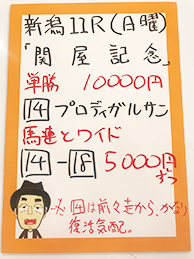 新潟11R(日曜)
「関屋記念」
単勝 10000円
14 プロディガルサン
馬連とワイド
14-18 5000円ずつ
14は前々走から、かなり
復活気配。